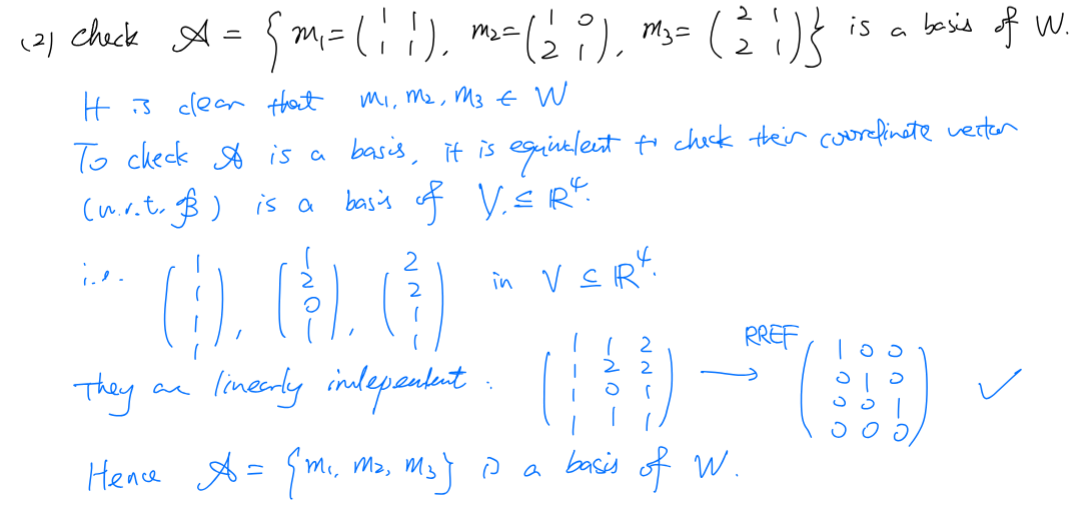 (2) check 𝒜 = { m₁ = (1 1; 1 1), m₂ = (1 0; 2 1), m₃ = (2 1; 2 1) } is a basis of W.
It is clear that m₁, m₂, m₃ ∈ W
To check 𝒜 is a basis, it is equivalent to check their coordinate vector
(w.r.t. ℬ) is a basis of V. ⊆ ℝ⁴.
i.e. (1; 1; 1; 1), (1; 2; 0; 1), (2; 2; 1; 1) in V ⊆ ℝ⁴.
They are linearly independent : (1 1 2; 1 2 2; 1 0 1; 1 1 1) RREF → (1 0 0; 0 1 0; 0 0 1; 0 0 0) ✓
Hence 𝒜 = {m₁, m₂, m₃} is a basis of W.